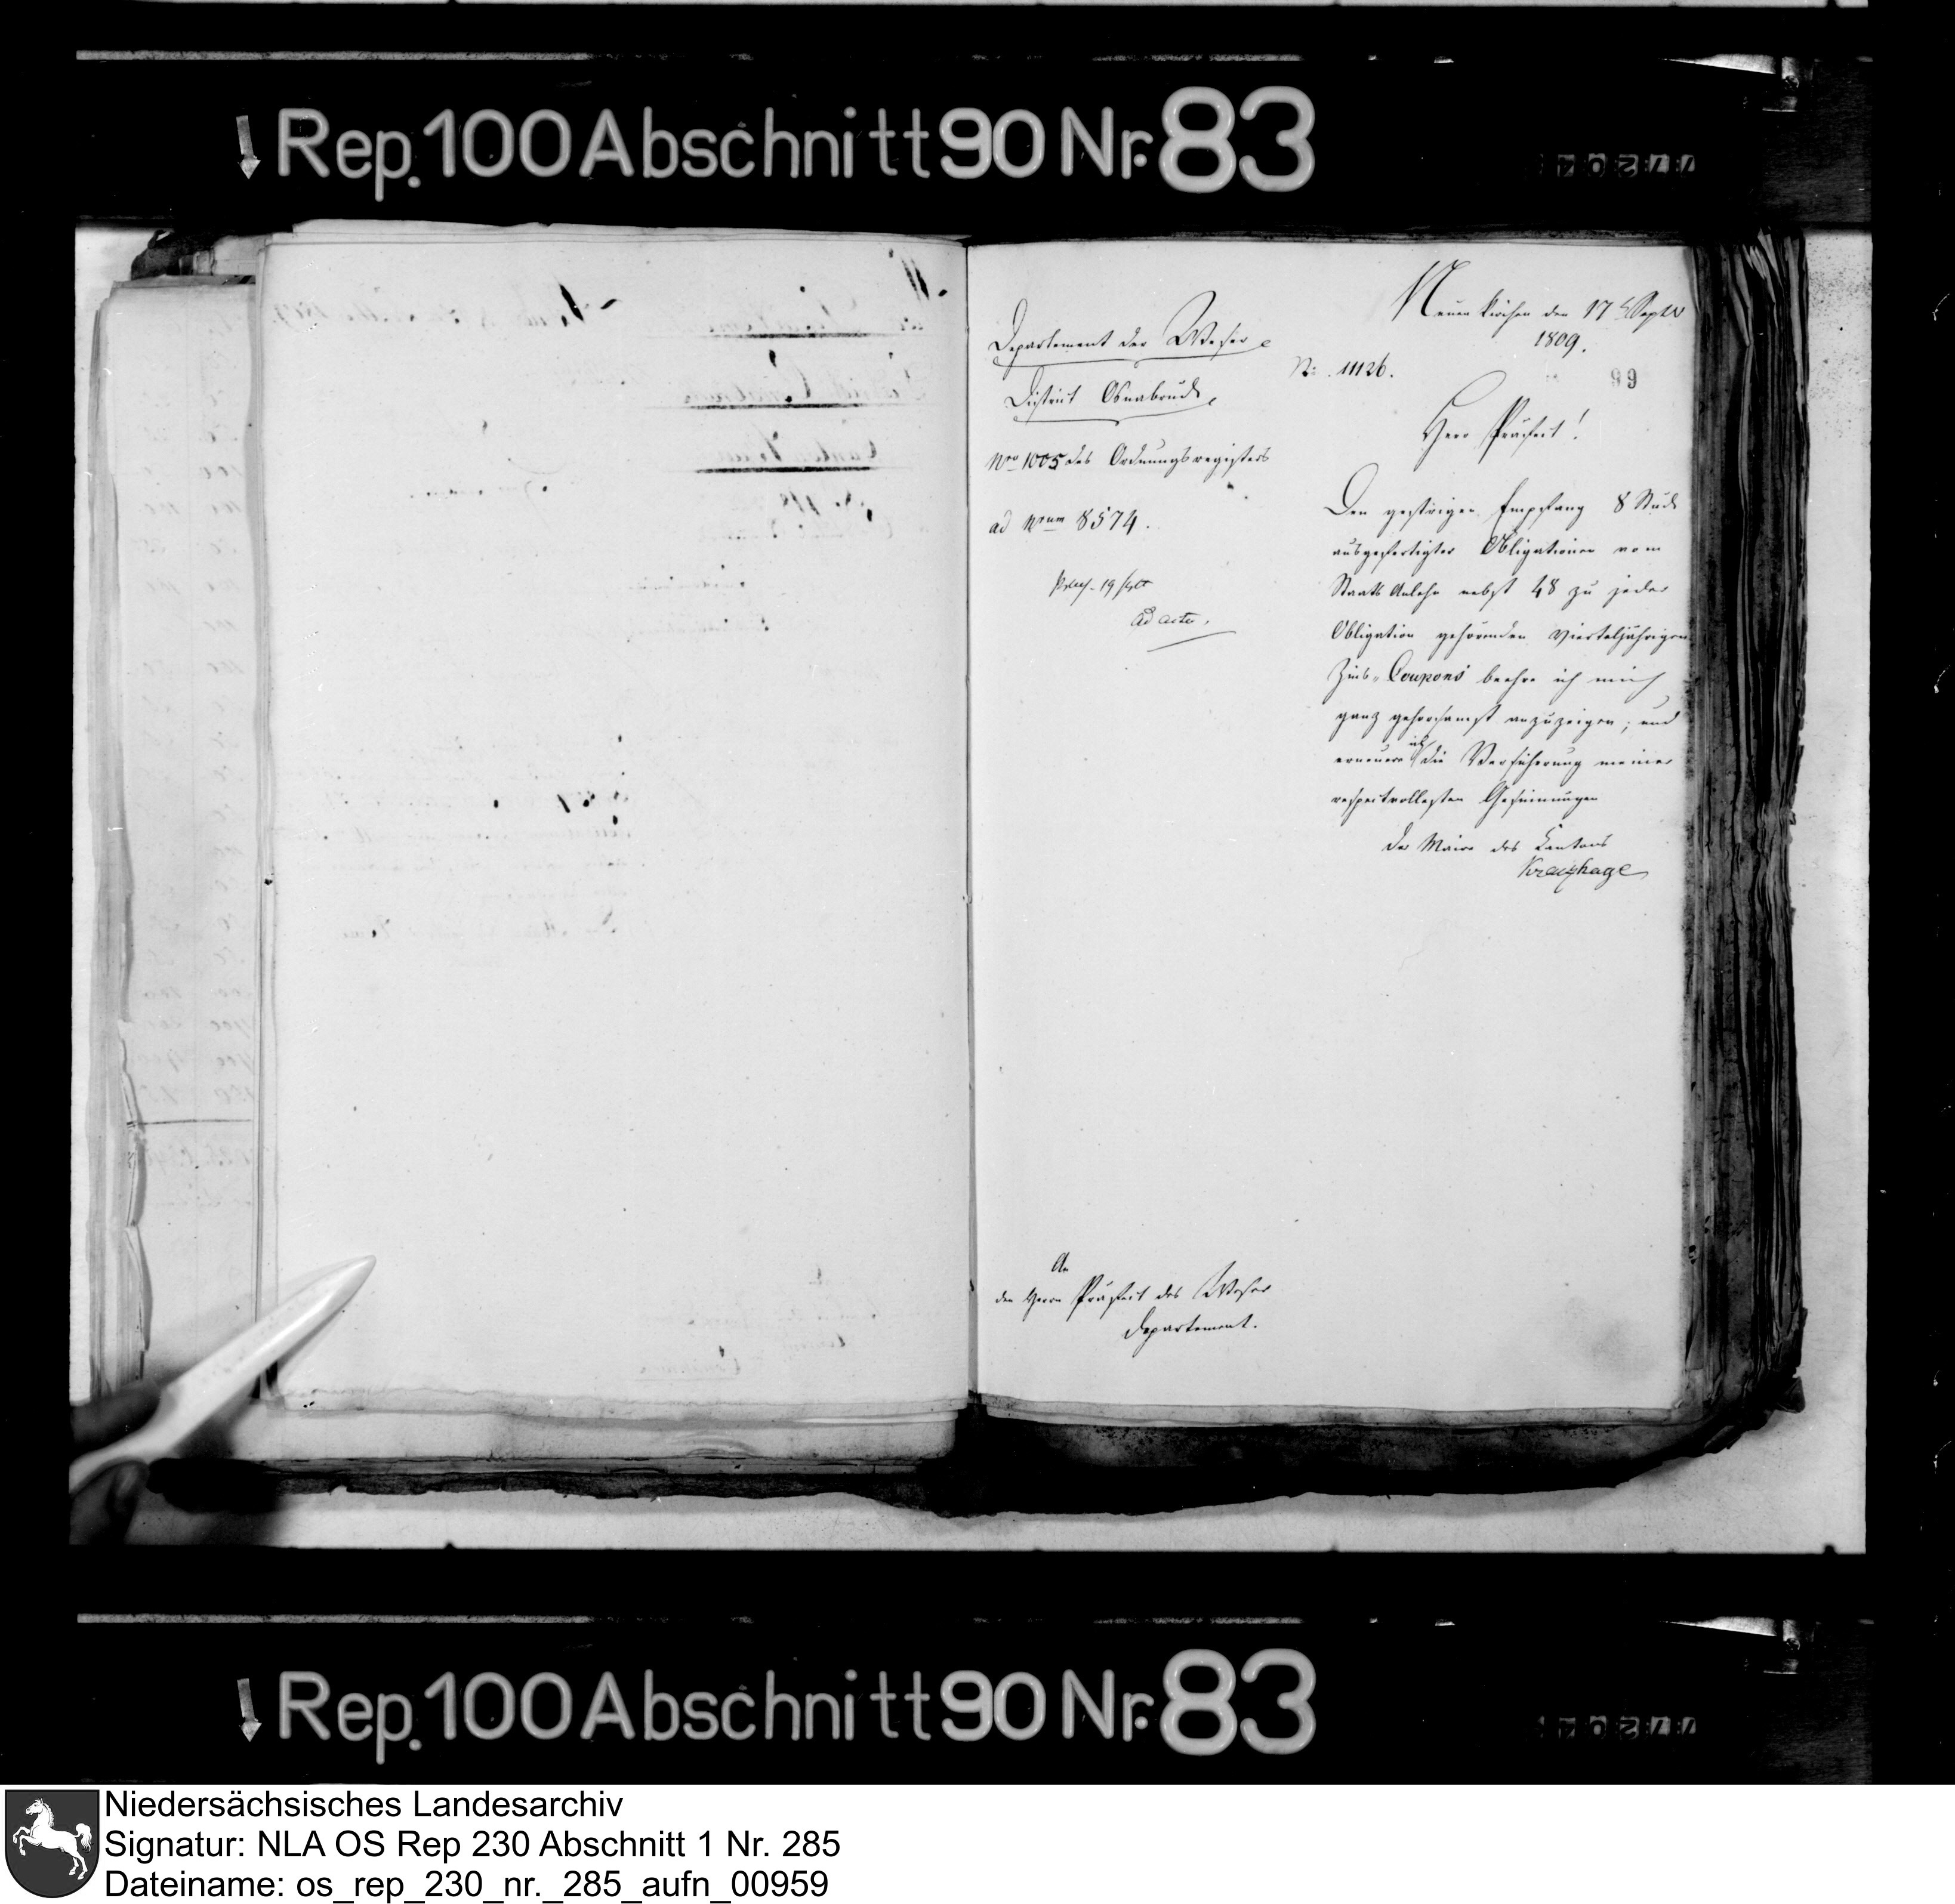 Rep. 100 Abschnitt 90 Nr. 83
77204
Neuenkirchen den 17t Septbr
1809.
Departement der Weser
N: 11126.
99
District Osnabrück
Herr Präfect!
Nro 1005 des Ordnungsregisters
ad Nrum 8574.
Den gestrigen Empfang 8 Stück
ausgefertigter Obligationen vom
Staats Anlehn nebst 48 zu jeder
Obligation gehörenden vierteljährigen
Zins-Coupons beehre ich mich
ganz gehorsamst anzuzeigen; und
erneuere ich die Versicherung meiner
respectvollesten Gesinnungen
Der Maire des Cantons
praes. 19 Sept
ad acta.
An
den Herrn Präfect des Weser
Departement.
Rep. 100 Abschnitt 90 Nr. 83
77204
Niedersächsisches Landesarchiv
Signatur: NLA OS Rep 230 Abschnitt 1 Nr. 285
Dateiname: os_rep_230_nr._285_aufn_00959